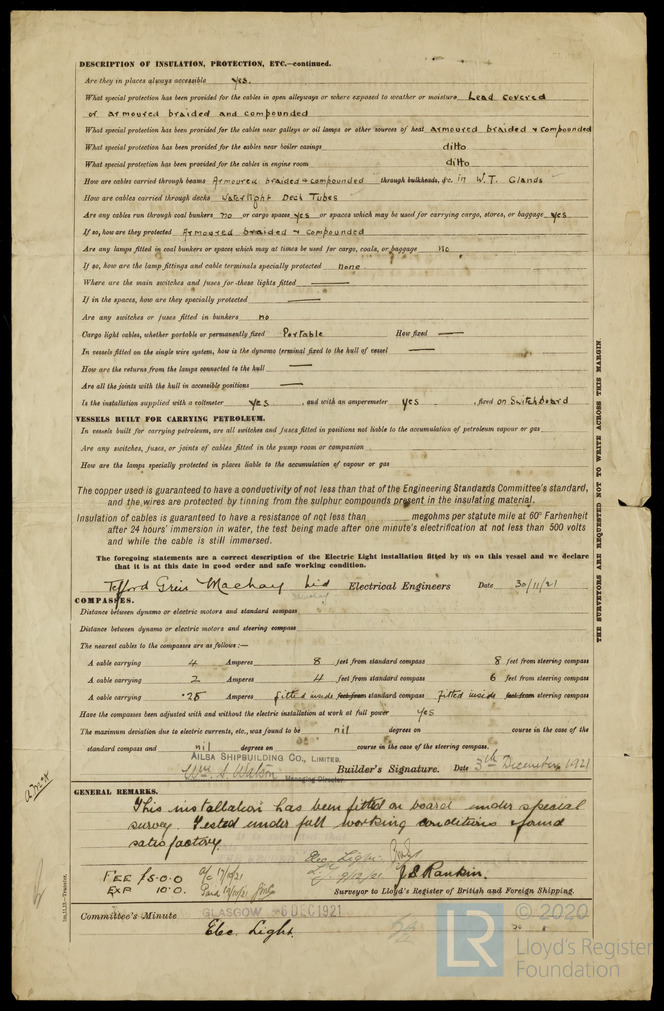 DESCRIPTION OF INSULATION, PROTECTION, ETC.—continued.
Are they in places always accessible Yes.
What special protection has been provided for the cables in open alleyways or where exposed to weather or moisture Lead covered
or armoured braided and compounded
What special protection has been provided for the cables near galleys or oil lamps or other sources of heat armoured braided & compounded
What special protection has been provided for the cables near boiler casings ditto
What special protection has been provided for the cables in engine room ditto
How are cables carried through beams Armoured braided & compounded through bulkheads, &c. in W.T. Glands
How are cables carried through decks Watertight Deck Tubes
Are any cables run through coal bunkers no or cargo spaces yes or spaces which may be used for carrying cargo, stores, or baggage yes
If so, how are they protected Armoured braided & compounded
Are any lamps fitted in coal bunkers or spaces which may at times be used for cargo, coals, or baggage no
If so, how are the lamp fittings and cable terminals specially protected none
Where are the main switches and fuses for these lights fitted —
If in the spaces, how are they specially protected —
Are any switches or fuses fitted in bunkers no
Cargo light cables, whether portable or permanently fixed Portable How fixed —
In vessels fitted on the single wire system, how is the dynamo terminal fixed to the hull of vessel —
How are the returns from the lamps connected to the hull —
Are all the joints with the hull in accessible positions —
Is the installation supplied with a voltmeter yes, and with an amperemeter yes, fixed on Switchboard
VESSELS BUILT FOR CARRYING PETROLEUM.
In vessels built for carrying petroleum, are all switches and fuses fitted in positions not liable to the accumulation of petroleum vapour or gas
Are any switches, fuses, or joints of cables fitted in the pump room or companion
How are the lamps specially protected in places liable to the accumulation of vapour or gas
The copper used is guaranteed to have a conductivity of not less than that of the Engineering Standards Committee's standard,
and the wires are protected by tinning from the sulphur compounds present in the insulating material.
Insulation of cables is guaranteed to have a resistance of not less than megohms per statute mile at 60° Farhenheit
after 24 hours' immersion in water, the test being made after one minute's electrification at not less than 500 volts
and while the cable is still immersed.
The foregoing statements are a correct description of the Electric Light installation fitted by us on this vessel and we declare
that it is at this date in good order and safe working condition.
Telford Grier Mackay Ltd Electrical Engineers Date 30/11/21
COMPASSES.
Distance between dynamo or electric motors and standard compass
Distance between dynamo or electric motors and steering compass
The nearest cables to the compasses are as follows:—
A cable carrying 4 Amperes 8 feet from standard compass 8 feet from steering compass
A cable carrying 2 Amperes 4 feet from standard compass 6 feet from steering compass
A cable carrying .25 Amperes fitted inside feet from standard compass fitted inside feet from steering compass
Have the compasses been adjusted with and without the electric installation at work at full power yes
The maximum deviation due to electric currents, etc., was found to be nil degrees on course in the case of the
standard compass and nil degrees on course in the case of the steering compass.
AILSA SHIPBUILDING CO., LIMITED.
Wm. S. Watson Managing Director. Builder's Signature. Date 3rd December 1921
GENERAL REMARKS.
This installation has been fitted on board under special
survey. Tested under full working conditions & found
satisfactory
Elec. Light.
9/12/21
FEE £5.0.0 a/c 17/10/21
EXP 10.0 Paid 19/10/21
J S Rankin.
Surveyor to Lloyd's Register of British and Foreign Shipping.
Committee's Minute GLASGOW 6 DEC 1921
Elec. Light.
THE SURVEYORS ARE REQUESTED NOT TO WRITE ACROSS THIS MARGIN.
© 2020
LR
Lloyd's Register
Foundation